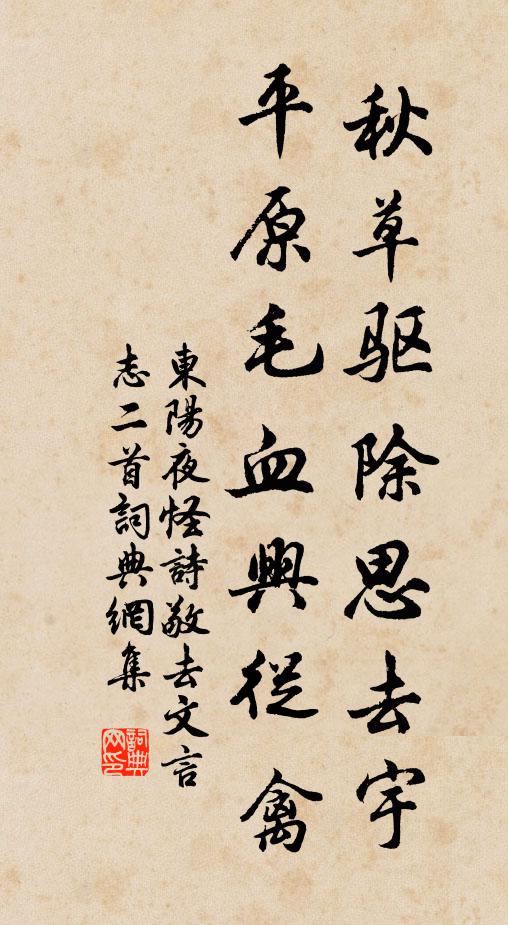 秋草驱除思去宇
平原毛血興從禽
東陽夜怪詩敬去文言
志二首詞典網集
詞典
网印